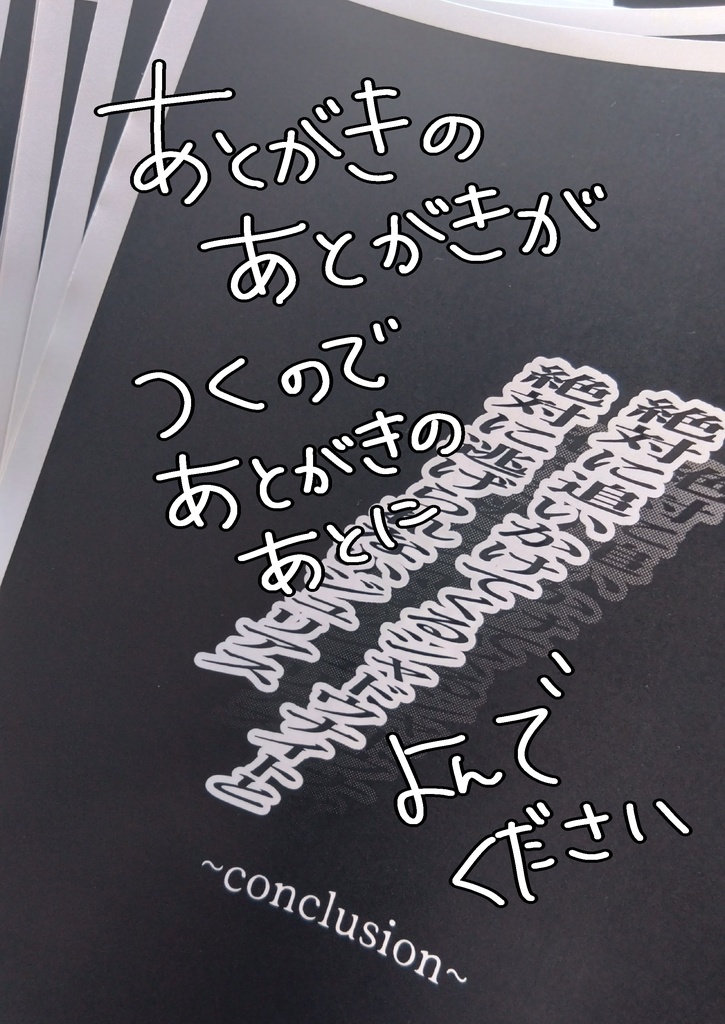 あとがきの
あとがきが
つくので
あとがきの
あとに
よんで
ください
絶対に追いかけて
絶対に逃げ
~conclusion~